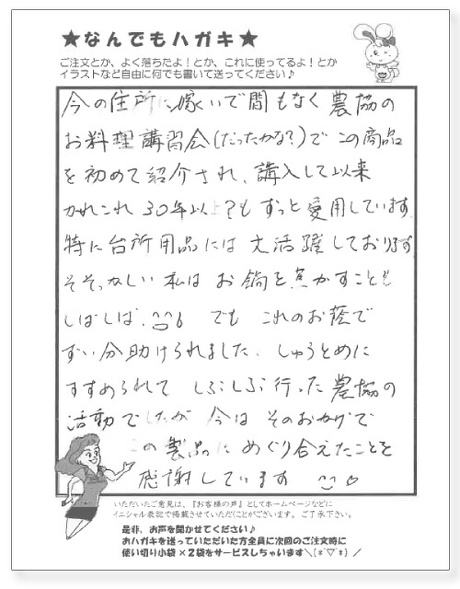 ★なんでもハガキ★
ご注文とか、よく落ちたよ！とか、これに使ってるよ！とか
イラストなど自由に何でも書いて送ってください♪
今の住所に嫁いで間もなく農協の
お料理講習会（だったかな？）でこの商品
を初めて紹介され、購入して以来
かれこれ30年以上？もずっと愛用しています。
特に台所用品には大活躍しております。
そそっかしい私はお鍋を焦がすことも
しばしば。でもこれのお蔭で
ずい分助けられました。しゅうとめに
すすめられてしぶしぶ行った農協の
活動でしたが今はそのおかげで
この製品にめぐり合えたことを
感謝しています
いただいたご意見は、『お客様の声』としてホームページなどに
イニシャル表記で掲載させていただことがございます。ご了承下さい。
是非、お声を聞かせてください♪
おハガキを送っていただいた方全員に次回のご注文時に
使い切り小袋×2袋をサービスしちゃいます＼(*ﾟ▽ﾟ*)／